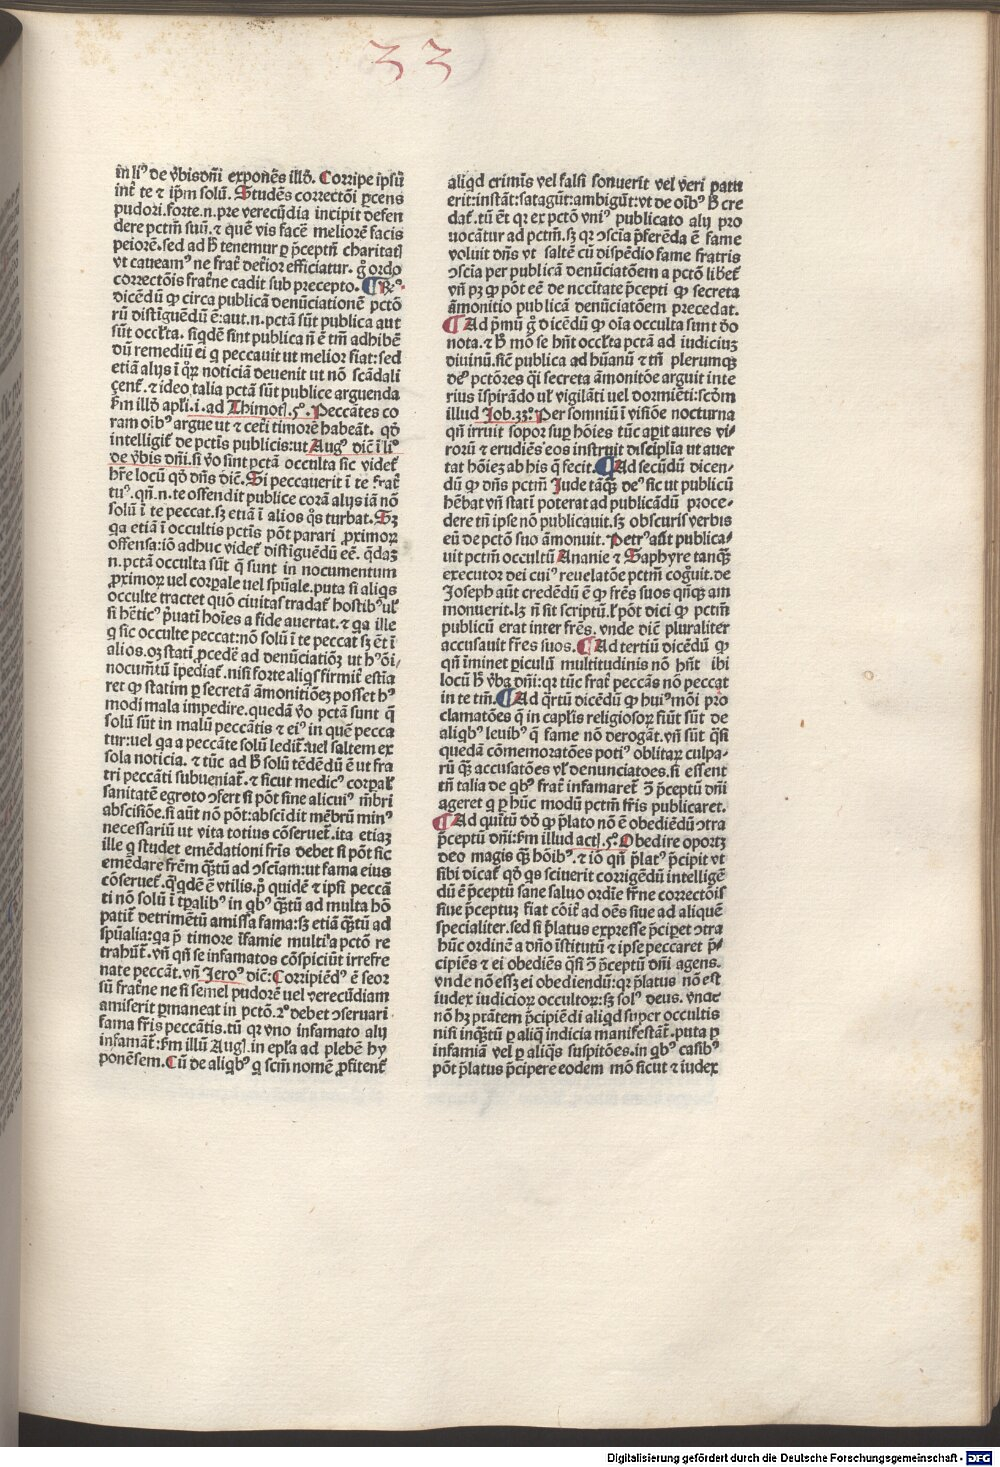 33
in li⁹ de v̄bis dñi exponēs illđ. Corripe ipsū
int̄ te ⁊ ip̄m solū. Studēs correctōi ꝑcens
pudori. forte .n. pre verecūdia incipit defen
dere pctm̄ suū. ⁊ quē vis facē meliorē facis
peiorē. sed ad h̄ tenemur ꝑ p̄ceptū charitatꝭ
vt caueam⁹ ne frat̄ det̄ior efficiatur. g̊ ordo
correctōis frat̄ne cadit sub precepto. ¶ R̄⁹.
dicēdū ꝙ circa publicā denūciationē pctō
rū distīguēdū ē: aut .n. pctā sūt publica aut
sūt occl̄ta. siqdē sint publica ñ ē tm̄ adhibē
dū remediū ei q peccauit ut melior fiat: sed
etiā alijs ī qꝝ noticiā deuenit ut nō scādali
cent̄. ⁊ ideo talia pctā sūt publice arguenda
ẜm illđ apl̄i .i. ad Thimotꝭ. 5⁰. Peccātes co
ram oīb⁹ argue ut ⁊ cet̄i timorē habeāt. qđ
intelligit̄ de pctīs publicis: ut Aug⁹ dic̄ ī li⁰
de v̄bis dñi. si v̄o sint pctā occulta sic videt̄
hr̄e locū qđ dn̄s dic̄. Si peccauerit ī te frat̄
tu⁹. qn̄ .n. te offendit publice corā alijs iā nō
solū ī te peccat. sꝫ etiā ī alios q̊s turbat. Sꝫ
qa etiā ī occultis pctīs pōt parari ꝓximoꝝ
offensa: iō adhuc videt̄ distīguēdū eē. q̄daꝫ
.n. pctā occulta sūt q̄ sunt in nocumentum
ꝓximoꝝ uel corꝑale uel spūale. puta si aliqs
occulte tractet quō ciuitas tradat̄ hostib⁹ ul̄
si hētic⁹ p̄uatī hoīes a fide auertat. ⁊ qa ille
q sic occulte peccat: nō solū ī te peccat sꝫ ēt ī
alios. oꝫ statī ꝓcedē ad denūciatiōꝫ ut h⁹ōi/
nocum̄tū īpediat̄. nisi forte aliqs firmit̄ estīa
ret ꝙ statim ꝑ secretā āmonitiōeꝫ posset h⁹
modi mala impedire. quedā v̄o pctā sunt q̄
solū sūt in malū peccātis ⁊ ei⁹ in quē pecca
tur: uel qa a peccāte solū ledit̄: uel saltem ex
sola noticia. ⁊ tūc ad h̄ solū tēdēdū ē ut fra
tri peccāti subueniat̄. ⁊ sicut medic⁹ corꝑal̄
sanitatē egroto ɔfert si pōt sine alicui⁹ m̄bri
abscisiōe. si aūt nō pōt: abscidit mēbrū min⁹
necessariū ut vita totius cōseruet̄. ita etiaꝫ
ille q studet emēdationi fr̄is debet si pōt sic
emēdare fr̄em q̄ꝫtū ad ɔsciam: ut fama eius
cōseruet̄. q̄ q̄dē ē vtilis. p̊ quidē ⁊ ipsi peccā
ti nō solū ī tꝑalib⁹ in qb⁹ q̄ꝫtū ad multa hō
patit̄ detrimētū amissa fama: sꝫ etiā q̄ꝫtū ad
spūalia: qa p̄ timore īfamie multi a pctō re
trahūt̄. vñ qn̄ se infamatos cōspiciūt irrefre
nate peccāt. vñ Jero⁹ dic̄: Corripiēd⁹ ē seor
sū frat̄ne ne si semel pudorē uel verecūdiam
amiserit ꝑmaneat in pctō. 2⁰ debet ɔseruari
fama fr̄is peccātis. tū qꝛ vno infamato alij
infamāt̄: ẜm illū Augꝭ. in epl̄a ad plebē hy
ponēsem. Cū de aliqb⁹ q scm̄ nomē ꝓfitent̄
aliqd crimīs vel falsi sonuerit vel veri patu
erit: instāt: satagūt: ambigūt: vt de oīb⁹ h̄ cre
dat̄. tū ēt qꝛ ex pctō vni⁹ publicato alij pro
uocātur ad pctm̄. sꝫ qꝛ ɔscia p̄ferēda ē fame
voluit dn̄s vt saltē cū dispēdio fame fratris
ɔscia per publicā denūciatōem a pctō libet̄
vñ pꝫ ꝙ pōt eē de nccītate p̄cepti ꝙ secreta
āmonitio publicā denūciatōem precedat.
¶ Ad p̄mū g̊ dicēdū ꝙ oīa occulta sunt đo
nota. ⁊ h̄ mō se hn̄t occl̄ta pctā ad iudiciuꝫ
diuinū. sic̄ publica ad hūanū ⁊ tn̄ plerumqꝫ
de⁹ pctōres q̄si secreta āmonitōe arguit inte
rius īspirādo ul̄ vigilāti uel dormiēti: scđm
illud Job. 33⁰. Per somniū ī visiōe nocturna
qn̄ irruit sopor suꝑ hōies tūc aꝑit aures vi/
rorū ⁊ erudiēs eos instruit disciplīa ut auer
tat hōieꝫ ab his q̄ fecit. ¶ Ad secūdū dicen/
dū ꝙ dn̄s pctm̄ Jude tāqꝫ de⁹ sic ut publicū
hēbat vñ statī poterat ad publicādū proce/
dere tn̄ ipse nō publicauit. sꝫ obscuris verbis
eū de pctō suo āmonuit. Petr⁹ aūt publica/
uit pctm̄ occultū Ananie ⁊ Saphyre tanqꝫ
executor dei cui⁹ reuelatōe pctm̄ cog̊uit. de
Joseph aūt credēdū ē ꝙ fr̄es suos qn̄qꝫ am
monuerit. lꝫ ñ sit scriptū. l̄ pōt dici ꝙ pctm̄
publicū erat inter fr̄es. vnde dic̄ pluraliter
accusauit fr̄es suos. ¶ Ad tertiū dicēdū ꝙ
qn̄ īminet ꝑiculū multitudinis nō hn̄t ibi
locū h̄ v̄ba dñi: qꝛ tūc frat̄ peccās nō peccat
in te tm̄. ¶ Ad q̄rtū dicēdū ꝙ hui⁹mōi pro
clamatōes q̄ in capl̄is religiosoꝝ fiūt sūt de
aliqb⁹ leuib⁹ q̄ fame nō derogāt. vñ sūt q̄si
quedā cōmemoratōes poti⁹ oblitaꝝ culpa/
rū qꝫ accusatōes vl̄ denunciatoes. si essent
tn̄ talia de qb⁹ frat̄ infamaret̄ ɔ̄ p̄ceptū dñi
ageret q ꝑ hūc modū pctm̄ fr̄is publicaret.
¶ Ad quītū đđ ꝙ p̄lato nō ē obediēdū ɔtra
p̄ceptū dñi: ẜm illud actꝭ. 5⁰. Obedire oportꝫ
deo magis qꝫ hōib⁹. ⁊ iō qn̄ p̄lat⁹ p̄cipit vt
sibi dicat̄ qđ qs sciuerit corrigēdū intelligē
dū ē p̄ceptū sane saluo ordīe fr̄ne correctōis
siue p̄ceptuꝫ fiat cōit̄ ad oēs siue ad aliquē
specialiter. sed si p̄latus expresse p̄cipet ɔtra
hūc ordinē a dño īstitutū ⁊ ipse peccaret p̄/
cipiēs ⁊ ei obediēs q̄si ɔ̄ p̄ceptū dñi agens.
vnde nō essꝫ ei obediendū: qꝛ p̄latus nō est
iudex iudicioꝝ occultoꝝ: sꝫ sol⁹ deus. vnde
nō hꝫ ptātem p̄cipiēdi aliqd super occultis
nisi inqꝫtū ꝑ aliq̄ indicia manifestāt̄. puta ꝑ
infamiā vel ꝑ aliq̄s suspitōes. in qb⁹ casib⁹
pōt p̄latus p̄cipere eodem mō sicut ⁊ iudex
Digitalisierung gefördert durch die Deutsche Forschungsgemeinschaft - DFG